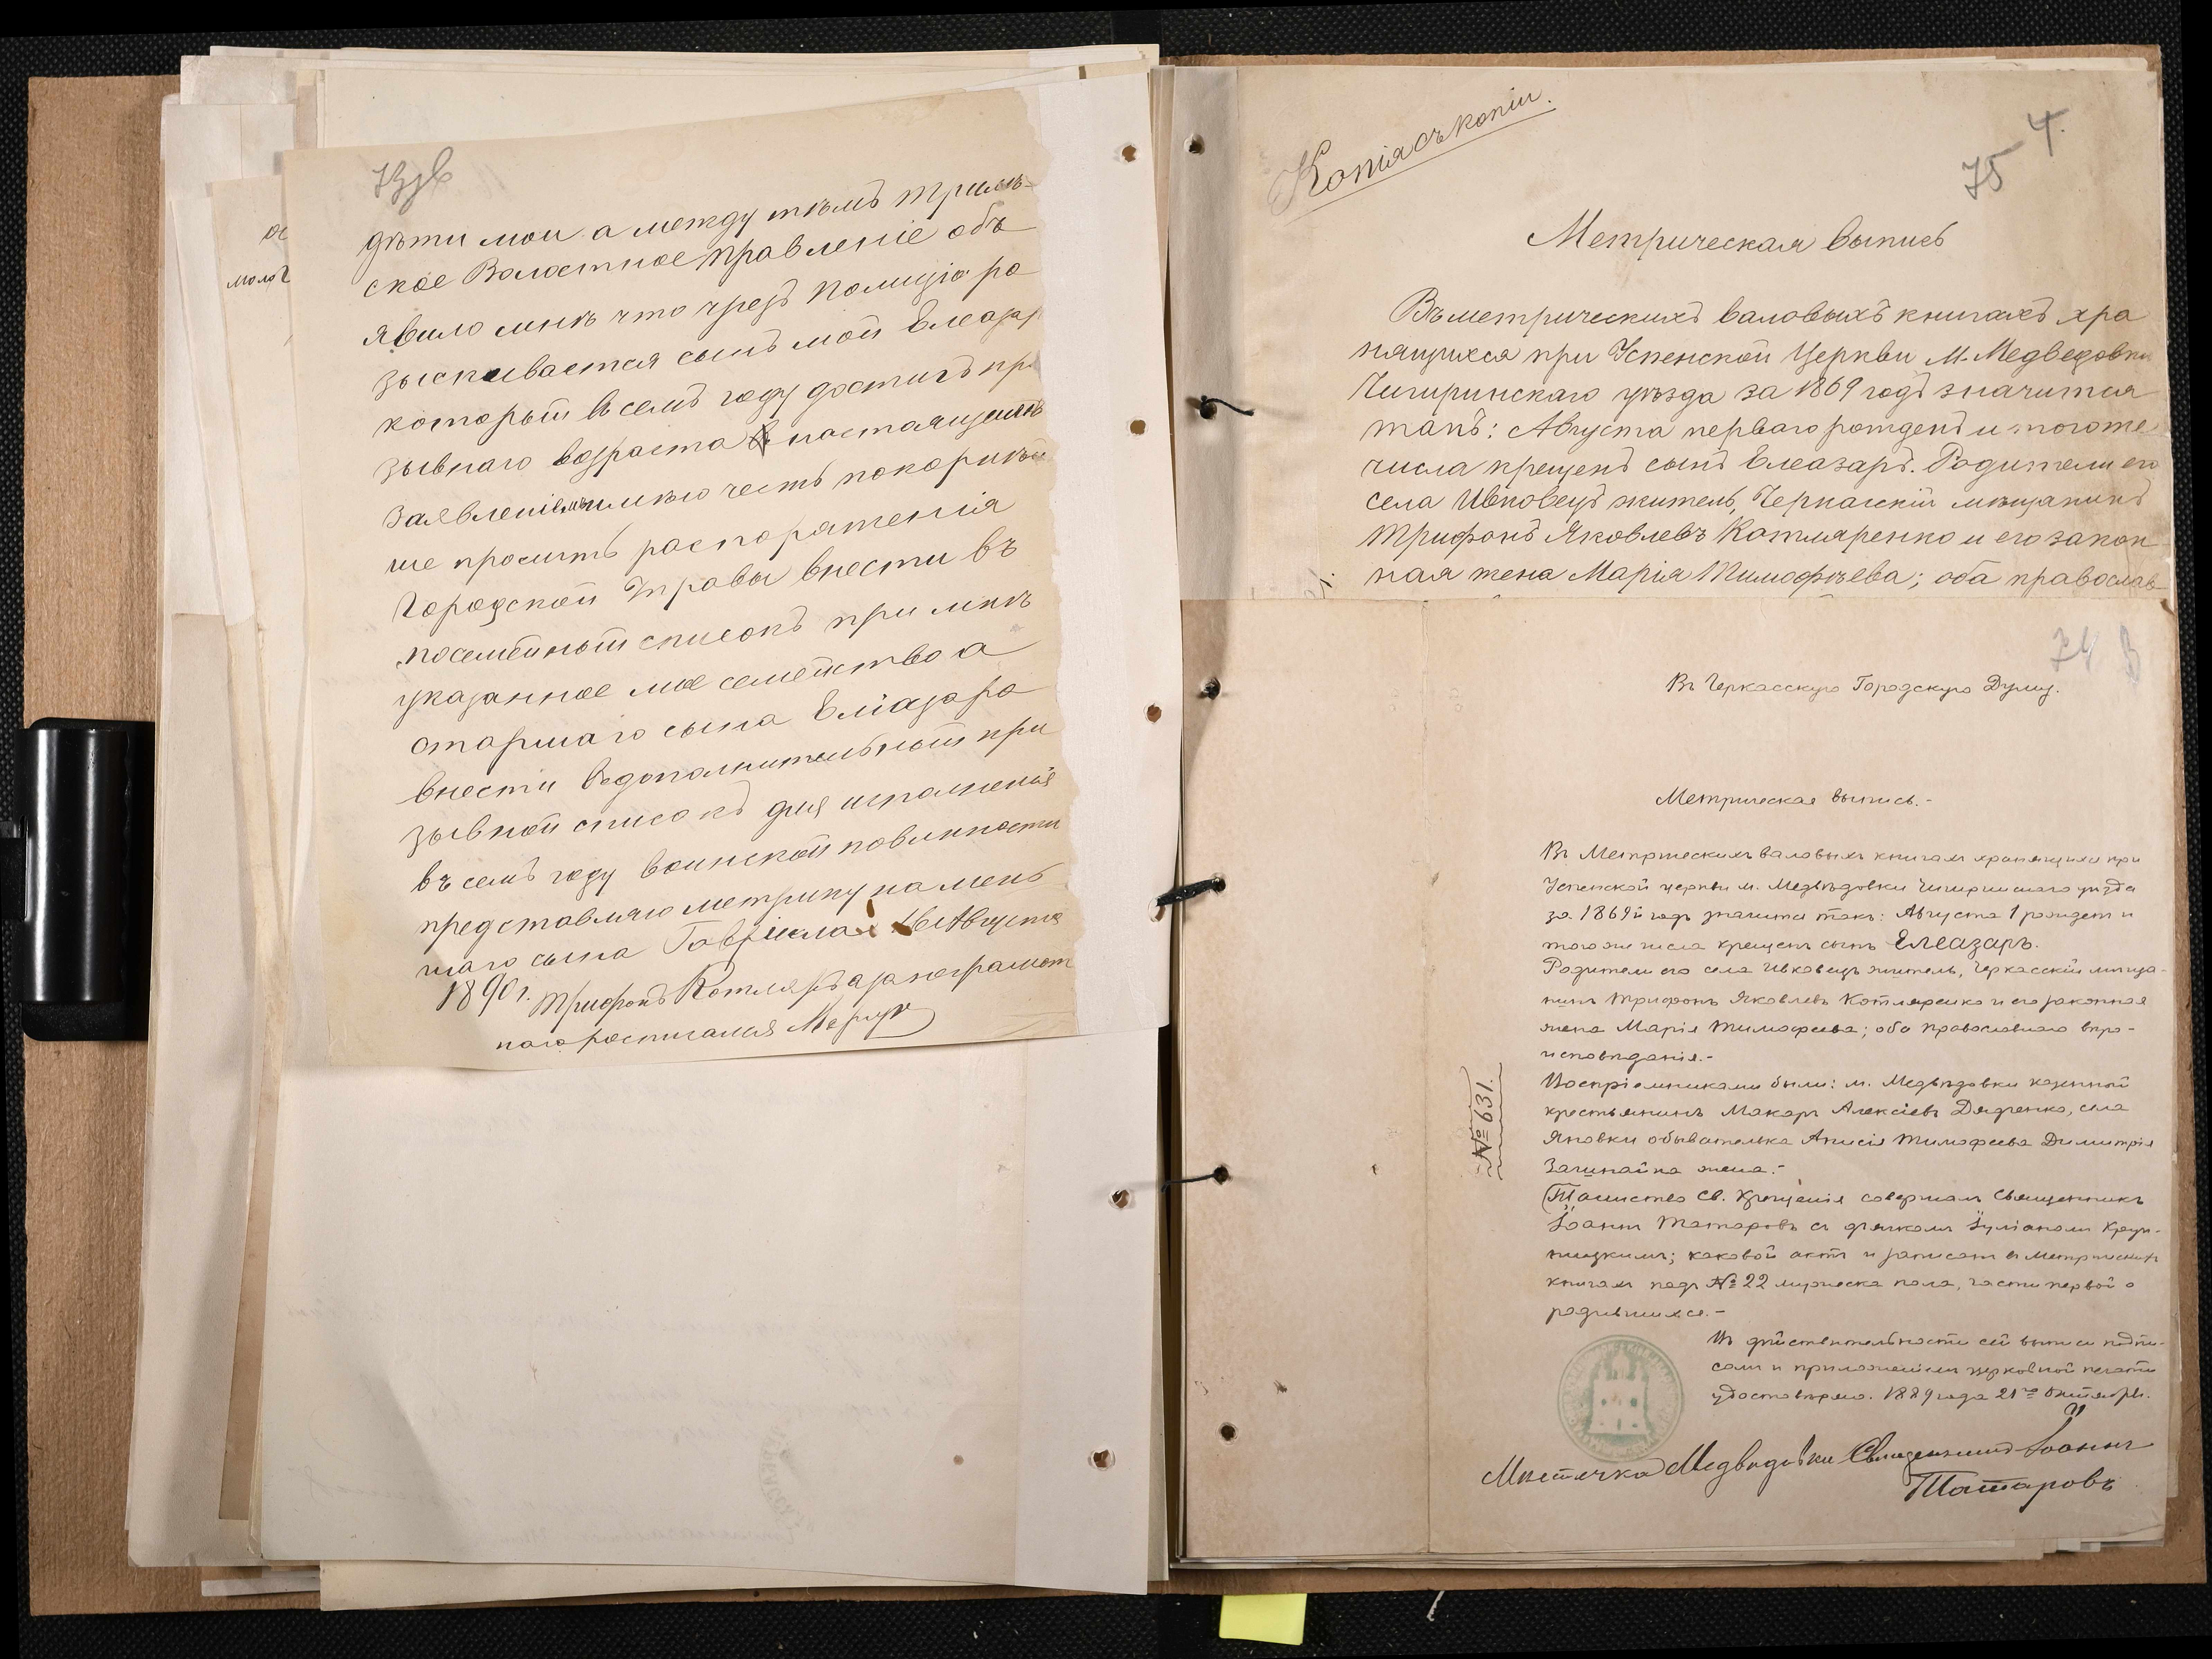 73зв
дѣти мои а между тѣмъ Трилѣ-
ское Волостное Правленіе объ
явило мнѣ что чрезъ Полицію ра
зыскивается сынъ мой Елеазар
который в семъ году достигъ при
зывнаго возраста в настоящемъ
заявленіем имѣю честь покорнѣй
ше просить распоряженія
Городской Управы внести въ
посемейный списокъ при мнѣ
указанное мое семейство а
старшаго сына Еліазара
внести вдополнительный при
зывной списокъ для исполненія
въ семъ году воинской повинности
представляю метрику на мень
шаго сына Гавріила 16 Августа
1890 г. Трифонъ Котляръ а за неграмот
наго росписался
молог
Копія съ копіи.
75 4.
Метрическая выпись
Въ метрическихъ валовыхъ книгахъ хра
нящихся при Успенской Церкви М. Медведовки
Чигиринскаго уѣзда за 1869 годъ значится
такъ: Августа перваго рожденъ и того же
числа крещенъ сынъ Елеазаръ. Родители его
села Ивковецъ житель, Черкасскій мѣщанинъ
Трифонъ Яковлевъ Котляренко и его закон
ная жена Марія Тимофѣева; оба православ-
74
Въ Черкасскую Городскую Думу.
Метрическая выпись.-
Въ Метрическихъ валовыхъ книгахъ хранящихся при
Успенской церкви м. Медвѣдовки Чигиринскаго уѣзда
за 1869й годъ значится такъ: Августа 1 рожденъ и
того же числа крещенъ сынъ Елеазаръ.
Родители его села Ивковецъ житель, Черкасскій мѣща-
нинъ Трифонъ Яковлевъ Котляренко и его законная
жена Марія Тимофеева; оба православнаго вѣро-
исповѣданія.-
Воспріемниками были: м. Медвѣдовки казенный
крестьянинъ Макаръ Алексіевъ Дядренко, села
Яновки обывателька Анисія Тимофеева Димитрія
Зачинайла жена.-
Таинство Св. Крещенія совершалъ Священникъ
Іоаннъ Татаровъ съ дьячкомъ Іуліаномъ Круп-
ницкимъ; каковой актъ и записанъ въ Метрическихъ
книгахъ подъ № 22 мужеска пола, части первой о
родившихся.-
Въ дѣйствительности сей выписи подпи-
сомъ и приложеніемъ церковной печати
удостовѣряю. 1889 года 21го Октября.
Мѣстечка Медвѣдовки Священникъ Іоаннъ
Татаровъ
№ 631.